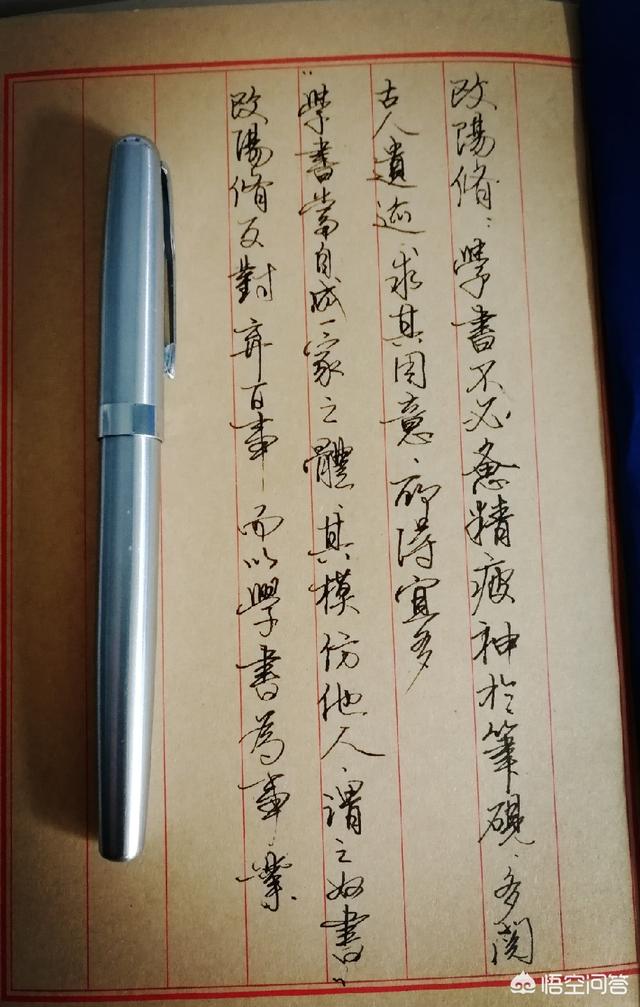 欧陽脩：學書不必惫精疲神於筆硯、多閱
古人遺迹、求其用意、所得宜多
“學書當自成一家之體、其模仿他人、謂之奴書”
欧陽脩反對弃百事而以學書為事業.
悟空问答